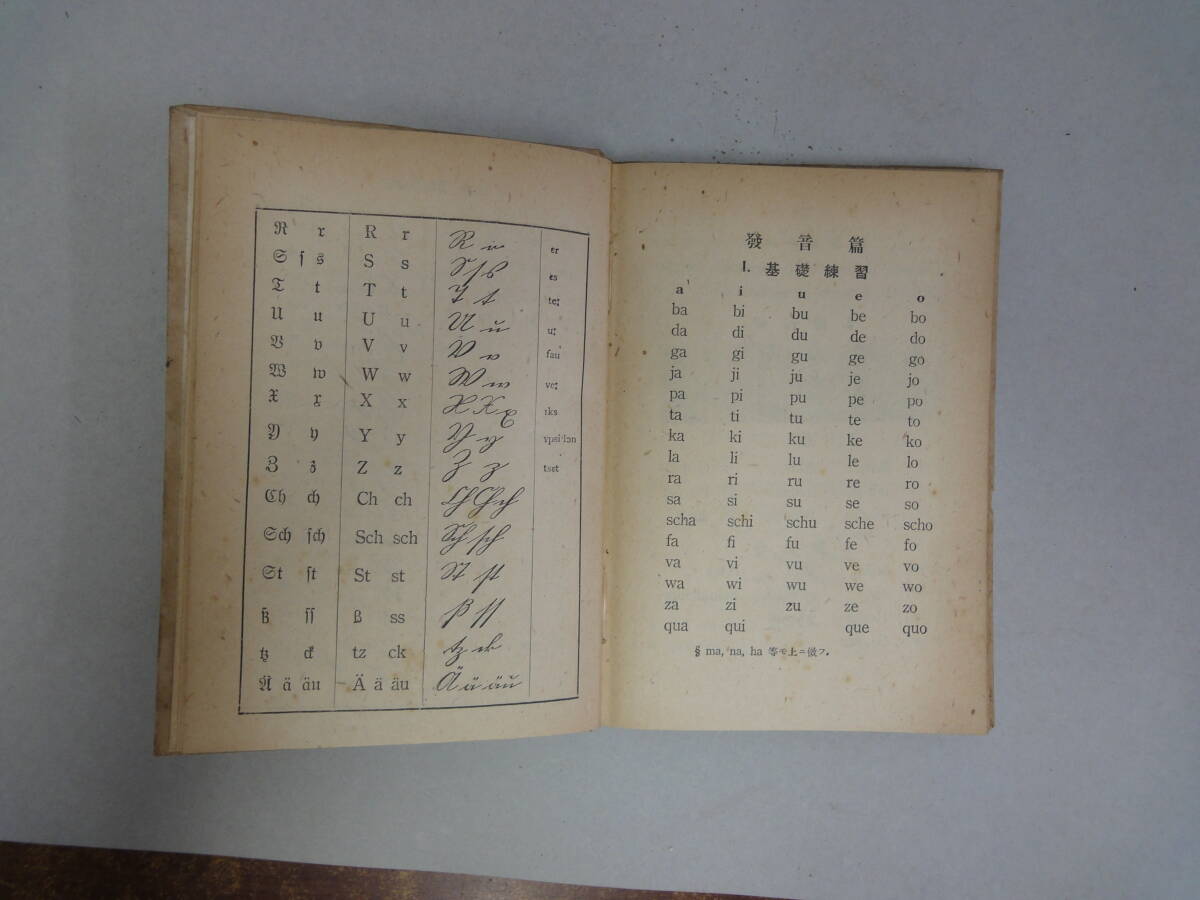 R r R r R r er
S ſ s S s S ſ s ɛs
T t T t T t teː
U u U u U u uː
V v V v V v fau
W w W w W w veː
X x X x X X x ɪks
Y y Y y Y y
Z z Z z Z z tsɛt
Ch ch Ch ch Ch Ch ch
Sch ſch Sch sch Sch ſch
St ſt St st St ſt
ß ſſ ß ss ß ſſ
tz ck tz ck tz ck
Ä ä äu Ä ä äu Ä ä äu
發音篇
I. 基礎練習
a i u e o
ba bi bu be bo
da di du de do
ga gi gu ge go
ja ji ju je jo
pa pi pu pe po
ta ti tu te to
ka ki ku ke ko
la li lu le lo
ra ri ru re ro
sa si su se so
scha schi schu sche scho
fa fi fu fe fo
va vi vu ve vo
wa wi wu we wo
za zi zu ze zo
qua qui que quo
§ ma, na, ha 等モ上ニ倣フ.